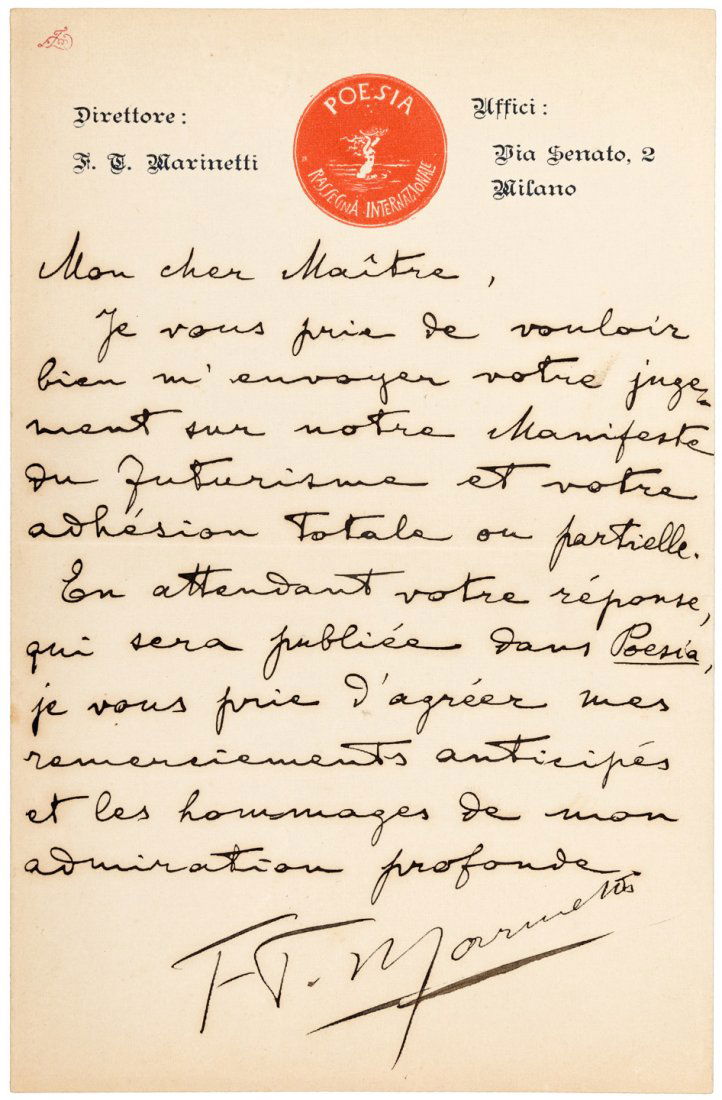 Direttore:
F. T. Marinetti
POESIA
RASSEGNA INTERNAZIONALE
Uffici:
Via Senato, 2
Milano
Mon cher Maître,
Je vous prie de vouloir
bien m'envoyer votre juge-
ment sur notre Manifeste
du Futurisme et votre
adhésion totale ou partielle.
En attendant votre réponse,
qui sera publiée dans Poesia,
je vous prie d'agréer mes
remerciements anticipés
et les hommages de mon
admiration profonde
F. T. Marinetti